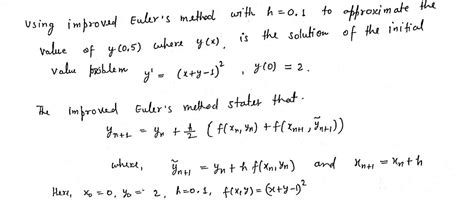 Using improved Euler's method with h = 0.1 to approximate the
value of y(0.5) where y(x), is the solution of the initial
value problem y' = (x+y-1)², y(0) = 2.
The improved Euler's method states that.
yₙ₊₁ = yₙ + h/2 (f(xₙ, yₙ) + f(xₙ₊₁, ỹₙ₊₁))
where, ỹₙ₊₁ = yₙ + h f(xₙ, yₙ) and xₙ₊₁ = xₙ + h
Here, x₀ = 0, y₀ = 2, h = 0.1, f(x,y) = (x+y-1)²